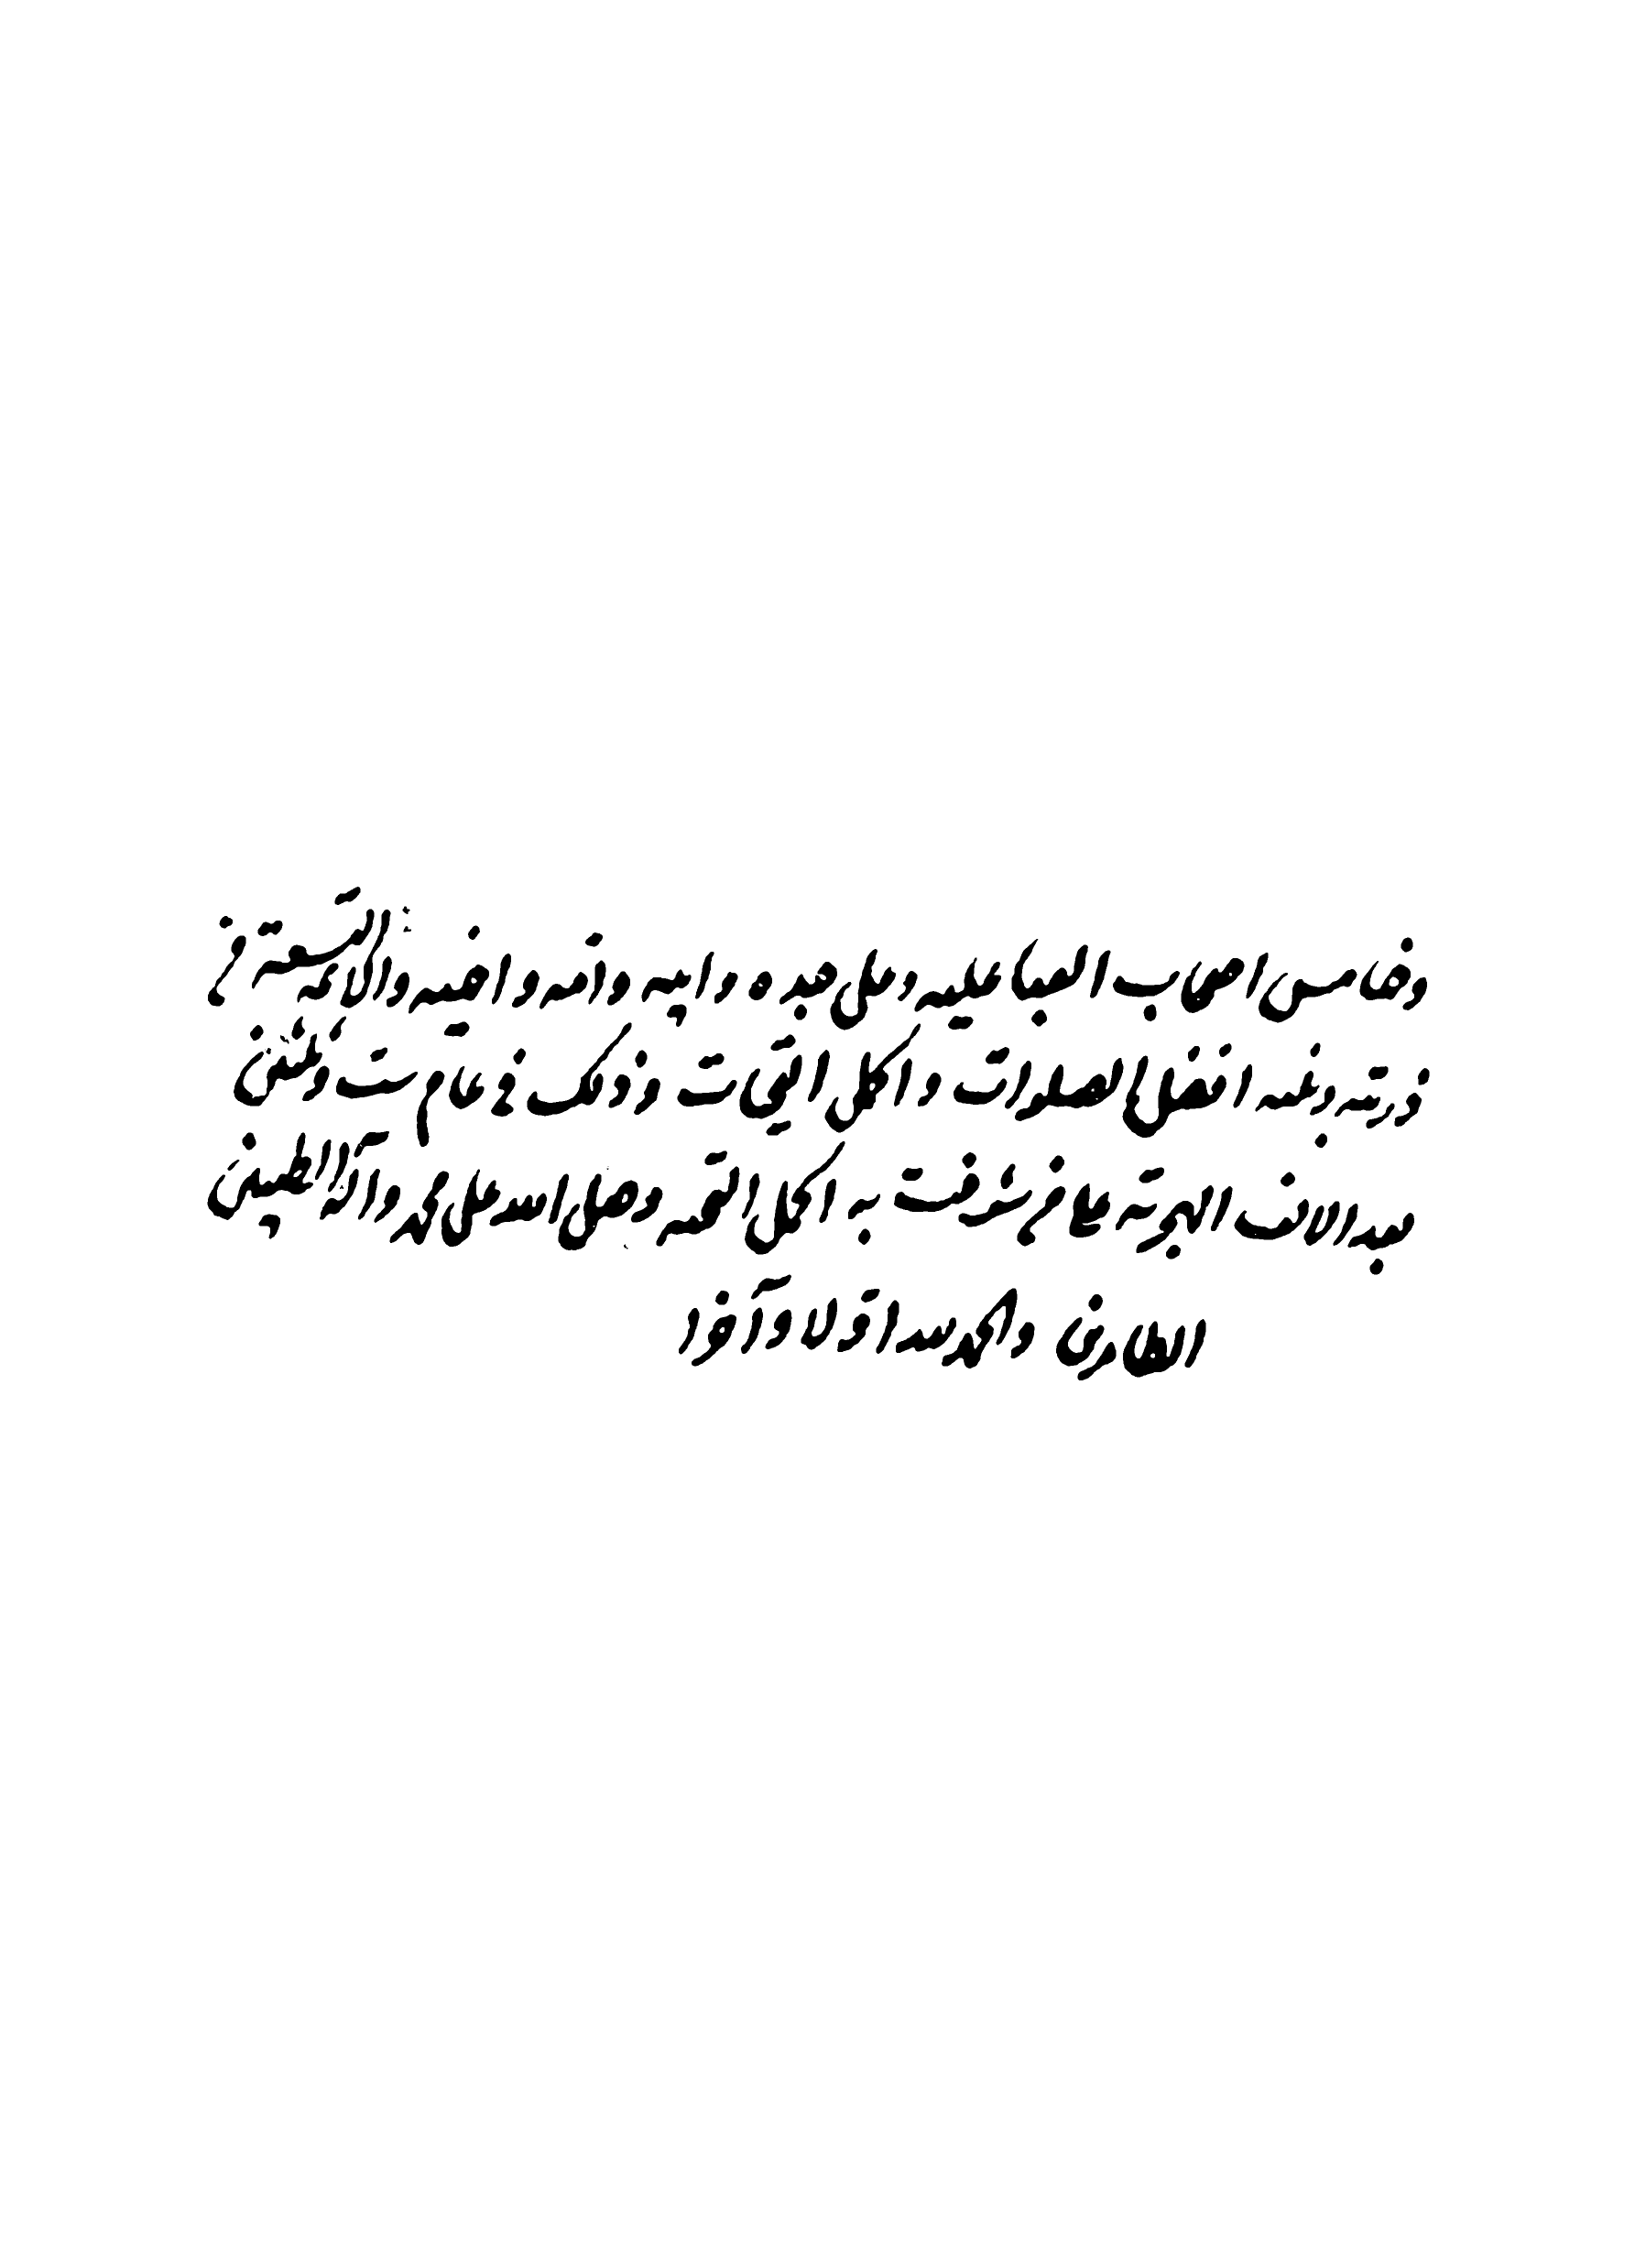 وخامس اصحاب العبا عليه وعلى جده وابيه وامه واخيه والائمة التسعة من
ذريته وبنيه افضل الصلوات واكمل التحيات وذلك في عام ست وثلثين
بعد الالف الهجرية على من شرفت به اكمل التحية وصلى الله على محمد وآله الطيبين
الطاهرين والحمد لله اولا وآخرا